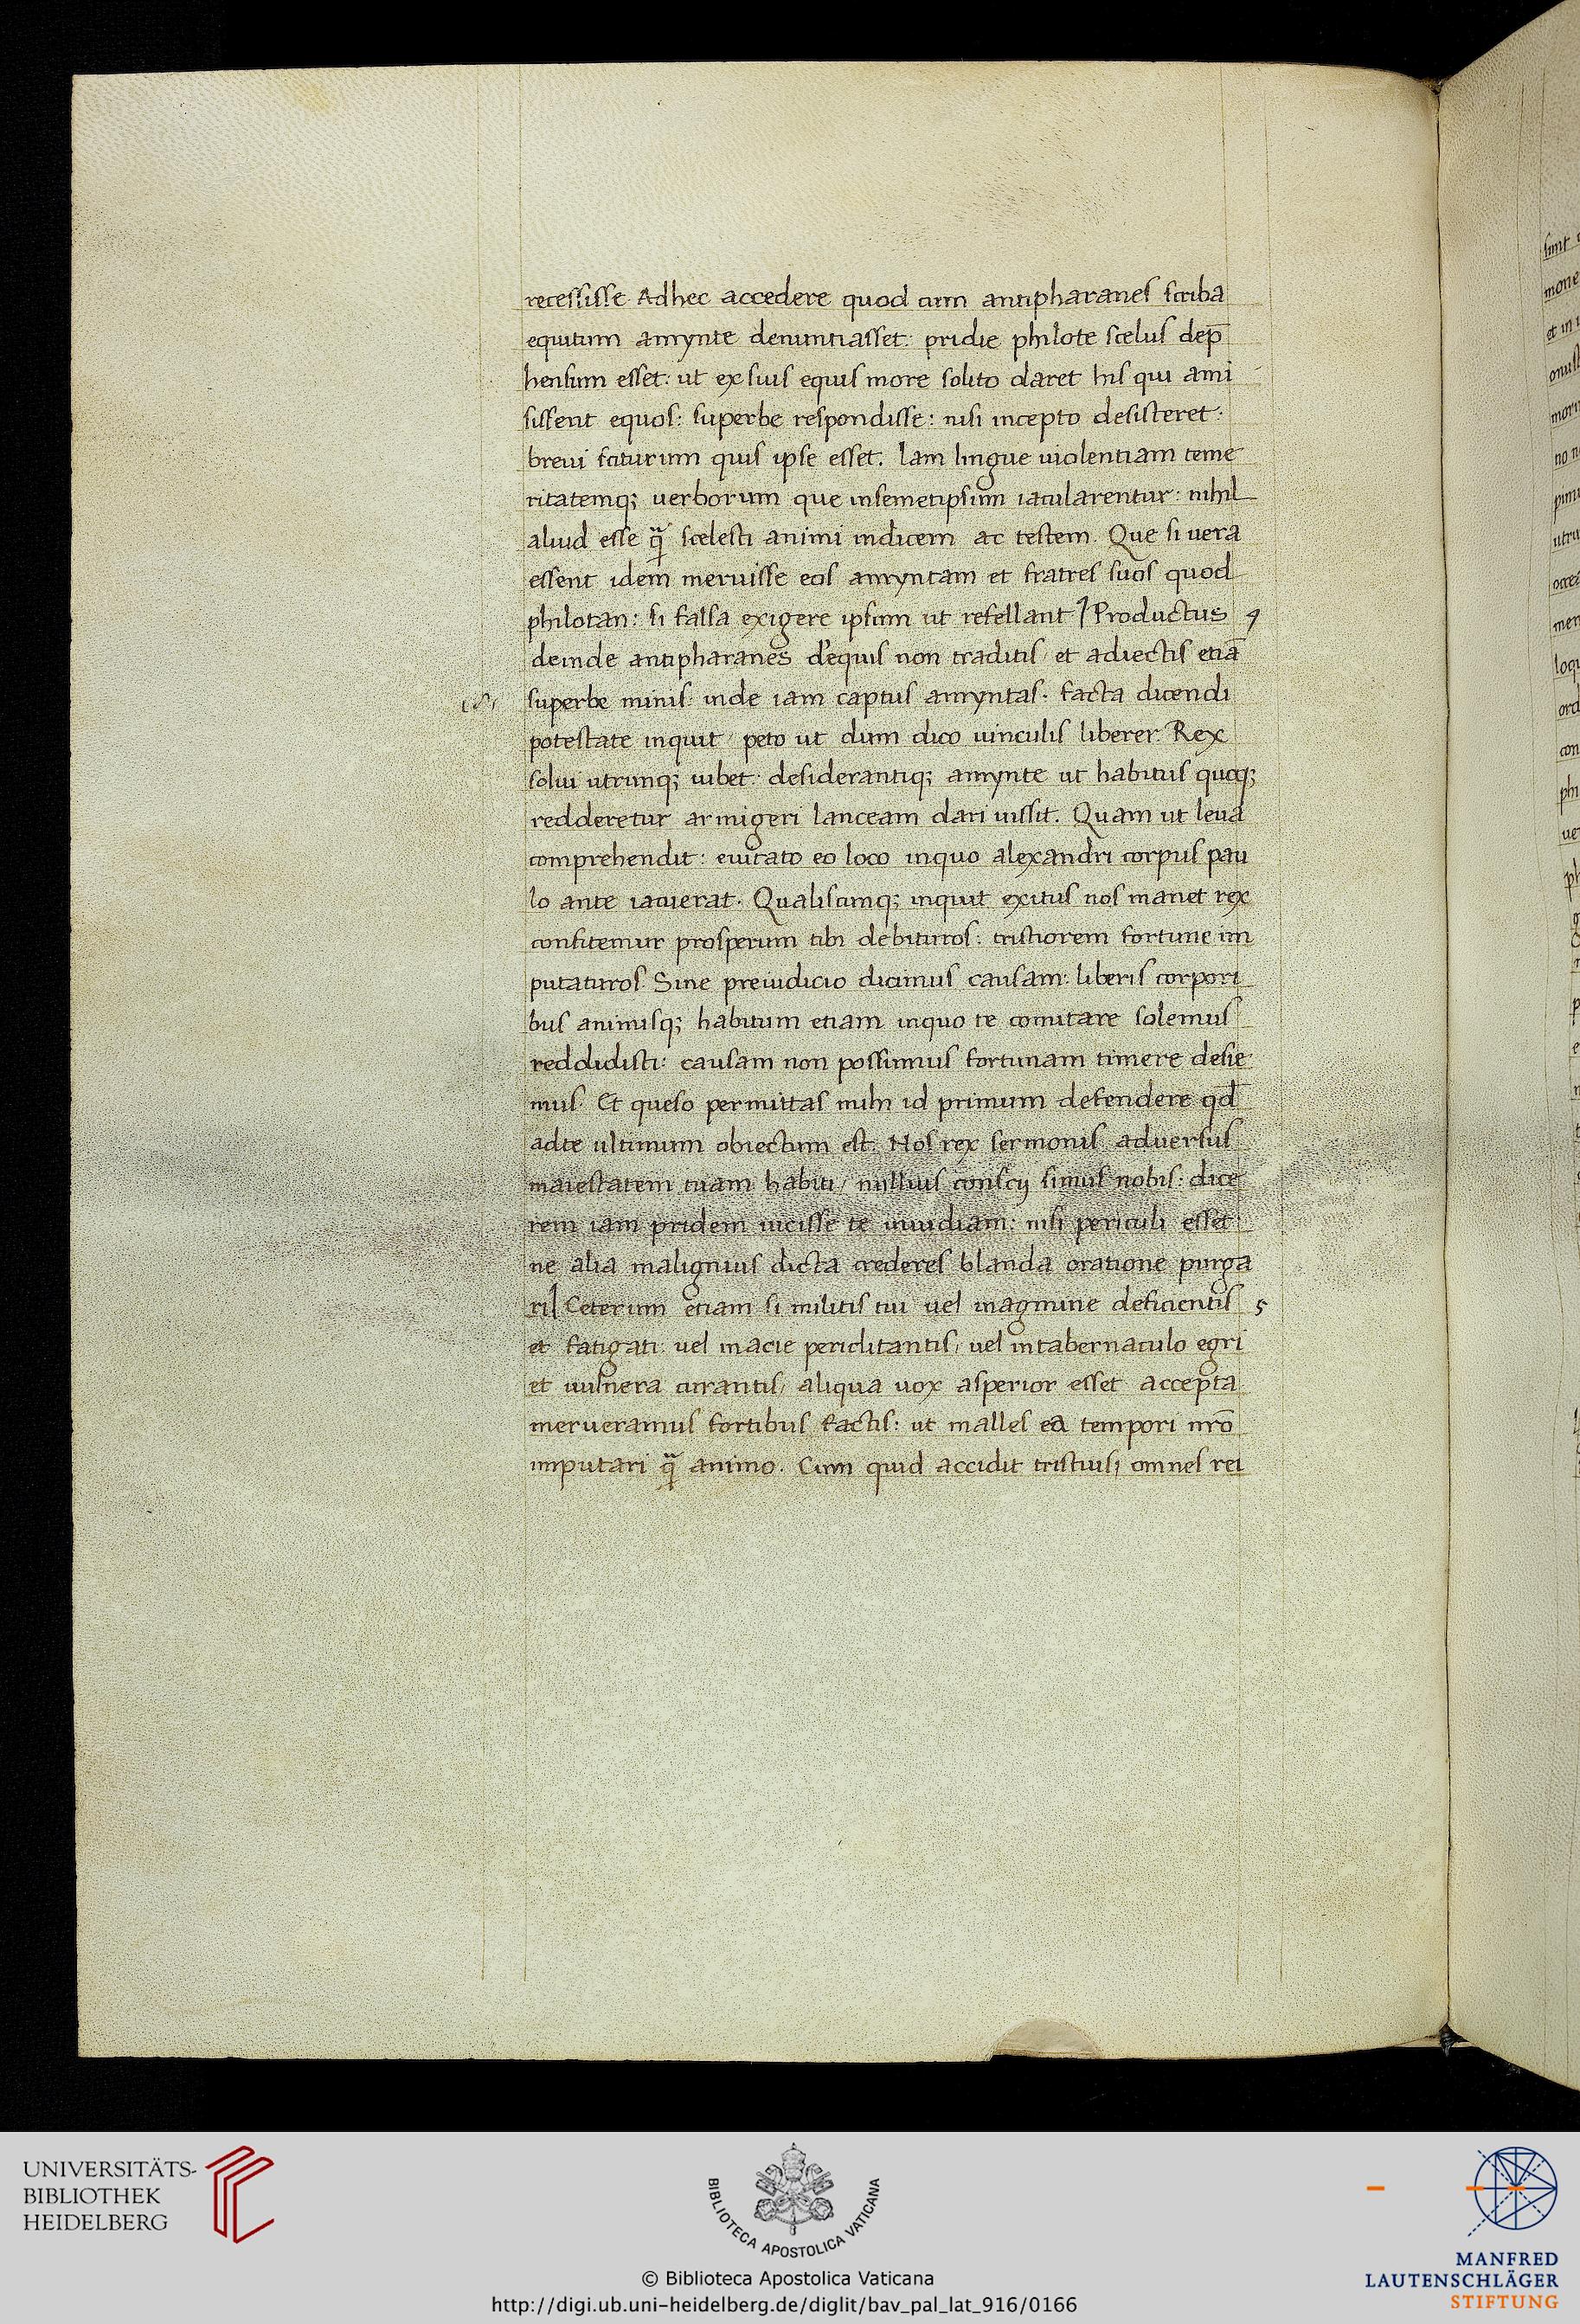 recessisse Adhec accedere quod cum antipharanes scriba
equitum amynte denuntiasset: pridie philote scelus dep̄
hensum esset: ut ex suis equis more solito daret his qui ami
sissent equos: superbe respondisse: nisi incepto desisteret:
brevi sciturum quis ipse esset. Iam lingue violentiam teme
ritatemq; verborum que insemetipsum iacularentur: nihil
aliud esse q̃ scelesti animi indicem ac testem. Que si vera
essent idem meruisse eos amyntam et fratres suos quod
philotan: si falsa exigere ipsum ut refellant Productus 4
deinde antipharanes d'equis non traditis, et adiectis etiā
superbe minis: inde iam captus amyntas. facta dicendi
potestate inquit, peto ut dum dico vinculis liberer. Rex
solui utrunq; iubet: desiderantiq; amynte ut habitus quoq;
redderetur armigeri lanceam dari iussit. Quam ut leva
comprehendit: evitato eo loco inquo alexandri corpus pau
lo ante iacuerat. Qualiscunq; inquit exitus nos manet rex
confitemur prosperum tibi debituros: tristiorem fortune im
putaturos. Sine preiudicio dicimus causam: liberis corpori
bus animisq; habitum etiam inquo te comitare solemus
reddidisti: causam non possumus fortunam timere desie
mus. Et queso permittas mihi id primum defendere qd̄
adte ultimum obiectum est. Nos rex sermonis adversus
maiestatem tuam habiti, nullius conscij simus nobis: dice
rem iam pridem vicisse te invidiam: nisi periculi esset:
ne alia malignius dicta crederes blanda oratione purga
ri Ceterum etiam si militis tui vel inagmine deficientis 5
et fatigati: vel inacie periclitantis, vel intabernaculo egri
et vulnera curantis, aliqua vox asperior esset accepta
merueramus fortibus factis: ut malles ea tempori nrō
imputari q̃ animo. Cum quid accidit tristius, omnes rei
UNIVERSITÄTS-
BIBLIOTHEK
HEIDELBERG
BIBLIOTECA APOSTOLICA VATICANA
© Biblioteca Apostolica Vaticana
http://digi.ub.uni-heidelberg.de/diglit/bav_pal_lat_916/0166
MANFRED
LAUTENSCHLÄGER
STIFTUNG